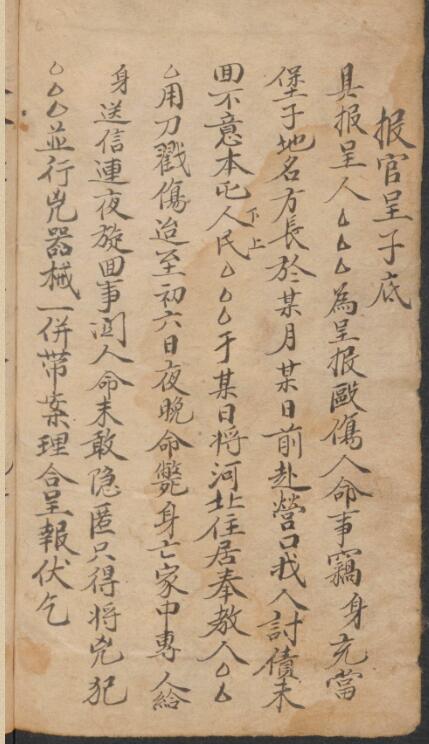 报官呈子底
具报呈人△△△為呈报毆傷人命事竊身充當
堡子地名方長於某月某日前赴營口找人討債未
回不意本屯人民△△△于某日將河北住居奉教人△△
下上
△用刀戳傷迨至初六日夜晚命斃身亡家中專人給
身送信連夜旋回事関人命未敢隐匿只得將兇犯
△△△並行兇器械一併帶案理合呈報伏乞